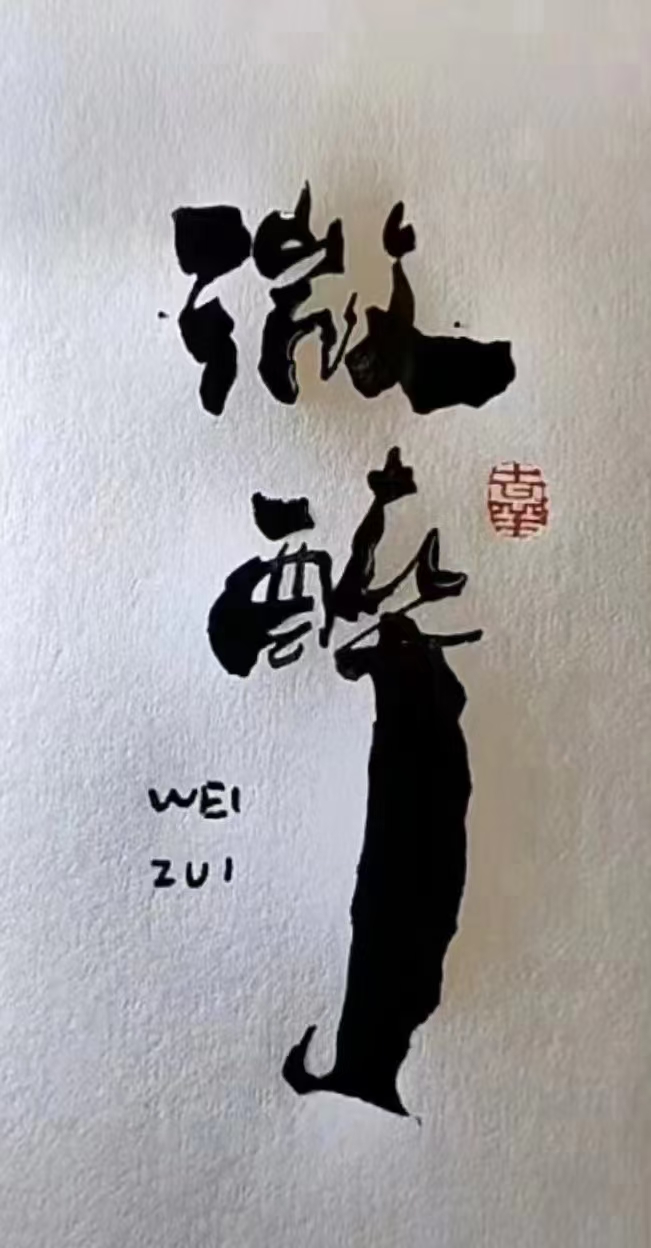 微
醉
WEI
ZUI